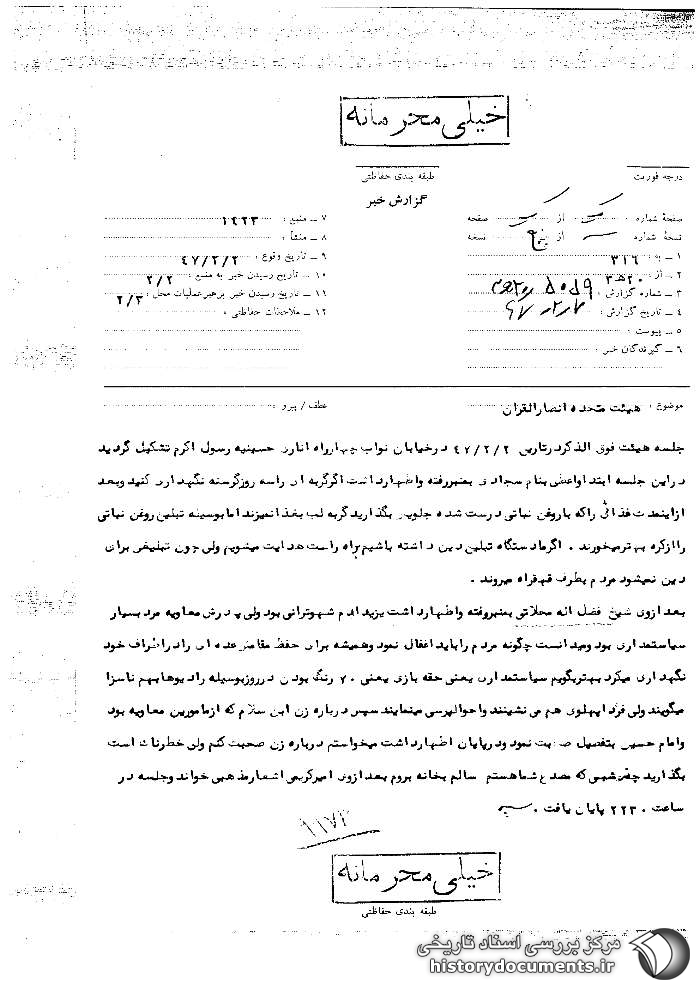 خیلی محرمانه
درجه فوریت
طبقه بندی حفاظتی
گزارش خبر
صفحه شماره : یک از یک صفحه
نسخه شماره از پنج نسخه
۱ ـ به : ۳۱۶
۲ ـ از : ۲۰ ه‍ ۳
۳ ـ شماره گزارش :
۴ ـ تاریخ گزارش :
۵ ـ پیوست :
۶ ـ گیرندگان خبر
۷ ـ منبع : ۱۴۲۳
۸ ـ منشأ :
۹ ـ تاریخ وقوع : ۴۷/۲/۲
۱۰ ـ تاریخ رسیدن خبر به منبع : ۲/۲
۱۱ ـ تاریخ رسیدن خبر برهبر عملیات محل : ۲/۳
۱۲ ـ ملاحظات حفاظتی :
موضوع : هیئت متحده انصارالقران
عطف / پیرو :
جلسه هیئت فوق الذکر در تاریخ ۴۷/۲/۲ در خیابان نواب چهارراه اناری حسینیه رسول اکرم تشکیل گردید
در این جلسه ابتدا واعظی بنام سجادی بمنبر رفته و اظهار داشت اگر گربه ای را سه روز گرسنه نگهداری کنید و بعد
از اینمدت غذائی را که با روغن نباتی درست شده جلویش بگذارید گربه لب بغذا نمیزند اما بوسیله تبلیغ روغن نباتی
را از کره بهتر میخورند . اگر ما دستگاه تبلیغ دین داشته باشیم براه راست هدایت میشویم ولی چون تبلیغی برای
دین نمیشود مردم بطرف قهقراه میروند .
بعد از وی شیخ فضل اله محلاتی بمنبر رفته و اظهار داشت یزید آدم شهوترانی بود ولی پدرش معاویه مرد بسیار
سیاستمداری بود و میدانست چگونه مردم را باید اغفال نمود و همیشه برای حفظ مقامش عده ای را در اطراف خود
نگهداری میکرد بهتر بگویم سیاستمداری یعنی حقه بازی یعنی ۷۰ رنگ بودن در روز بوسیله رادیوها بهم ناسزا
میگویند ولی فردا پهلوی هم می نشینند و احوالپرسی مینمایند سپس درباره زن ابن سلام که از مامورین معاویه بود
و امام حسین بتفصیل صحبت نمود و در پایان اظهار داشت میخواستم درباره زن صحبت کنم ولی خطرناک است
بگذارید شبی که مصدع شما هستم سالم بخانه بروم بعد از وی امیر کریمی اشعار مذهبی خواند و جلسه در
ساعت ۲۲۳۰ پایان یافت .
۹۱۷۳
خیلی محرمانه
طبقه بندی حفاظتی
مرکز بررسی اسناد تاریخی
historydocuments.ir